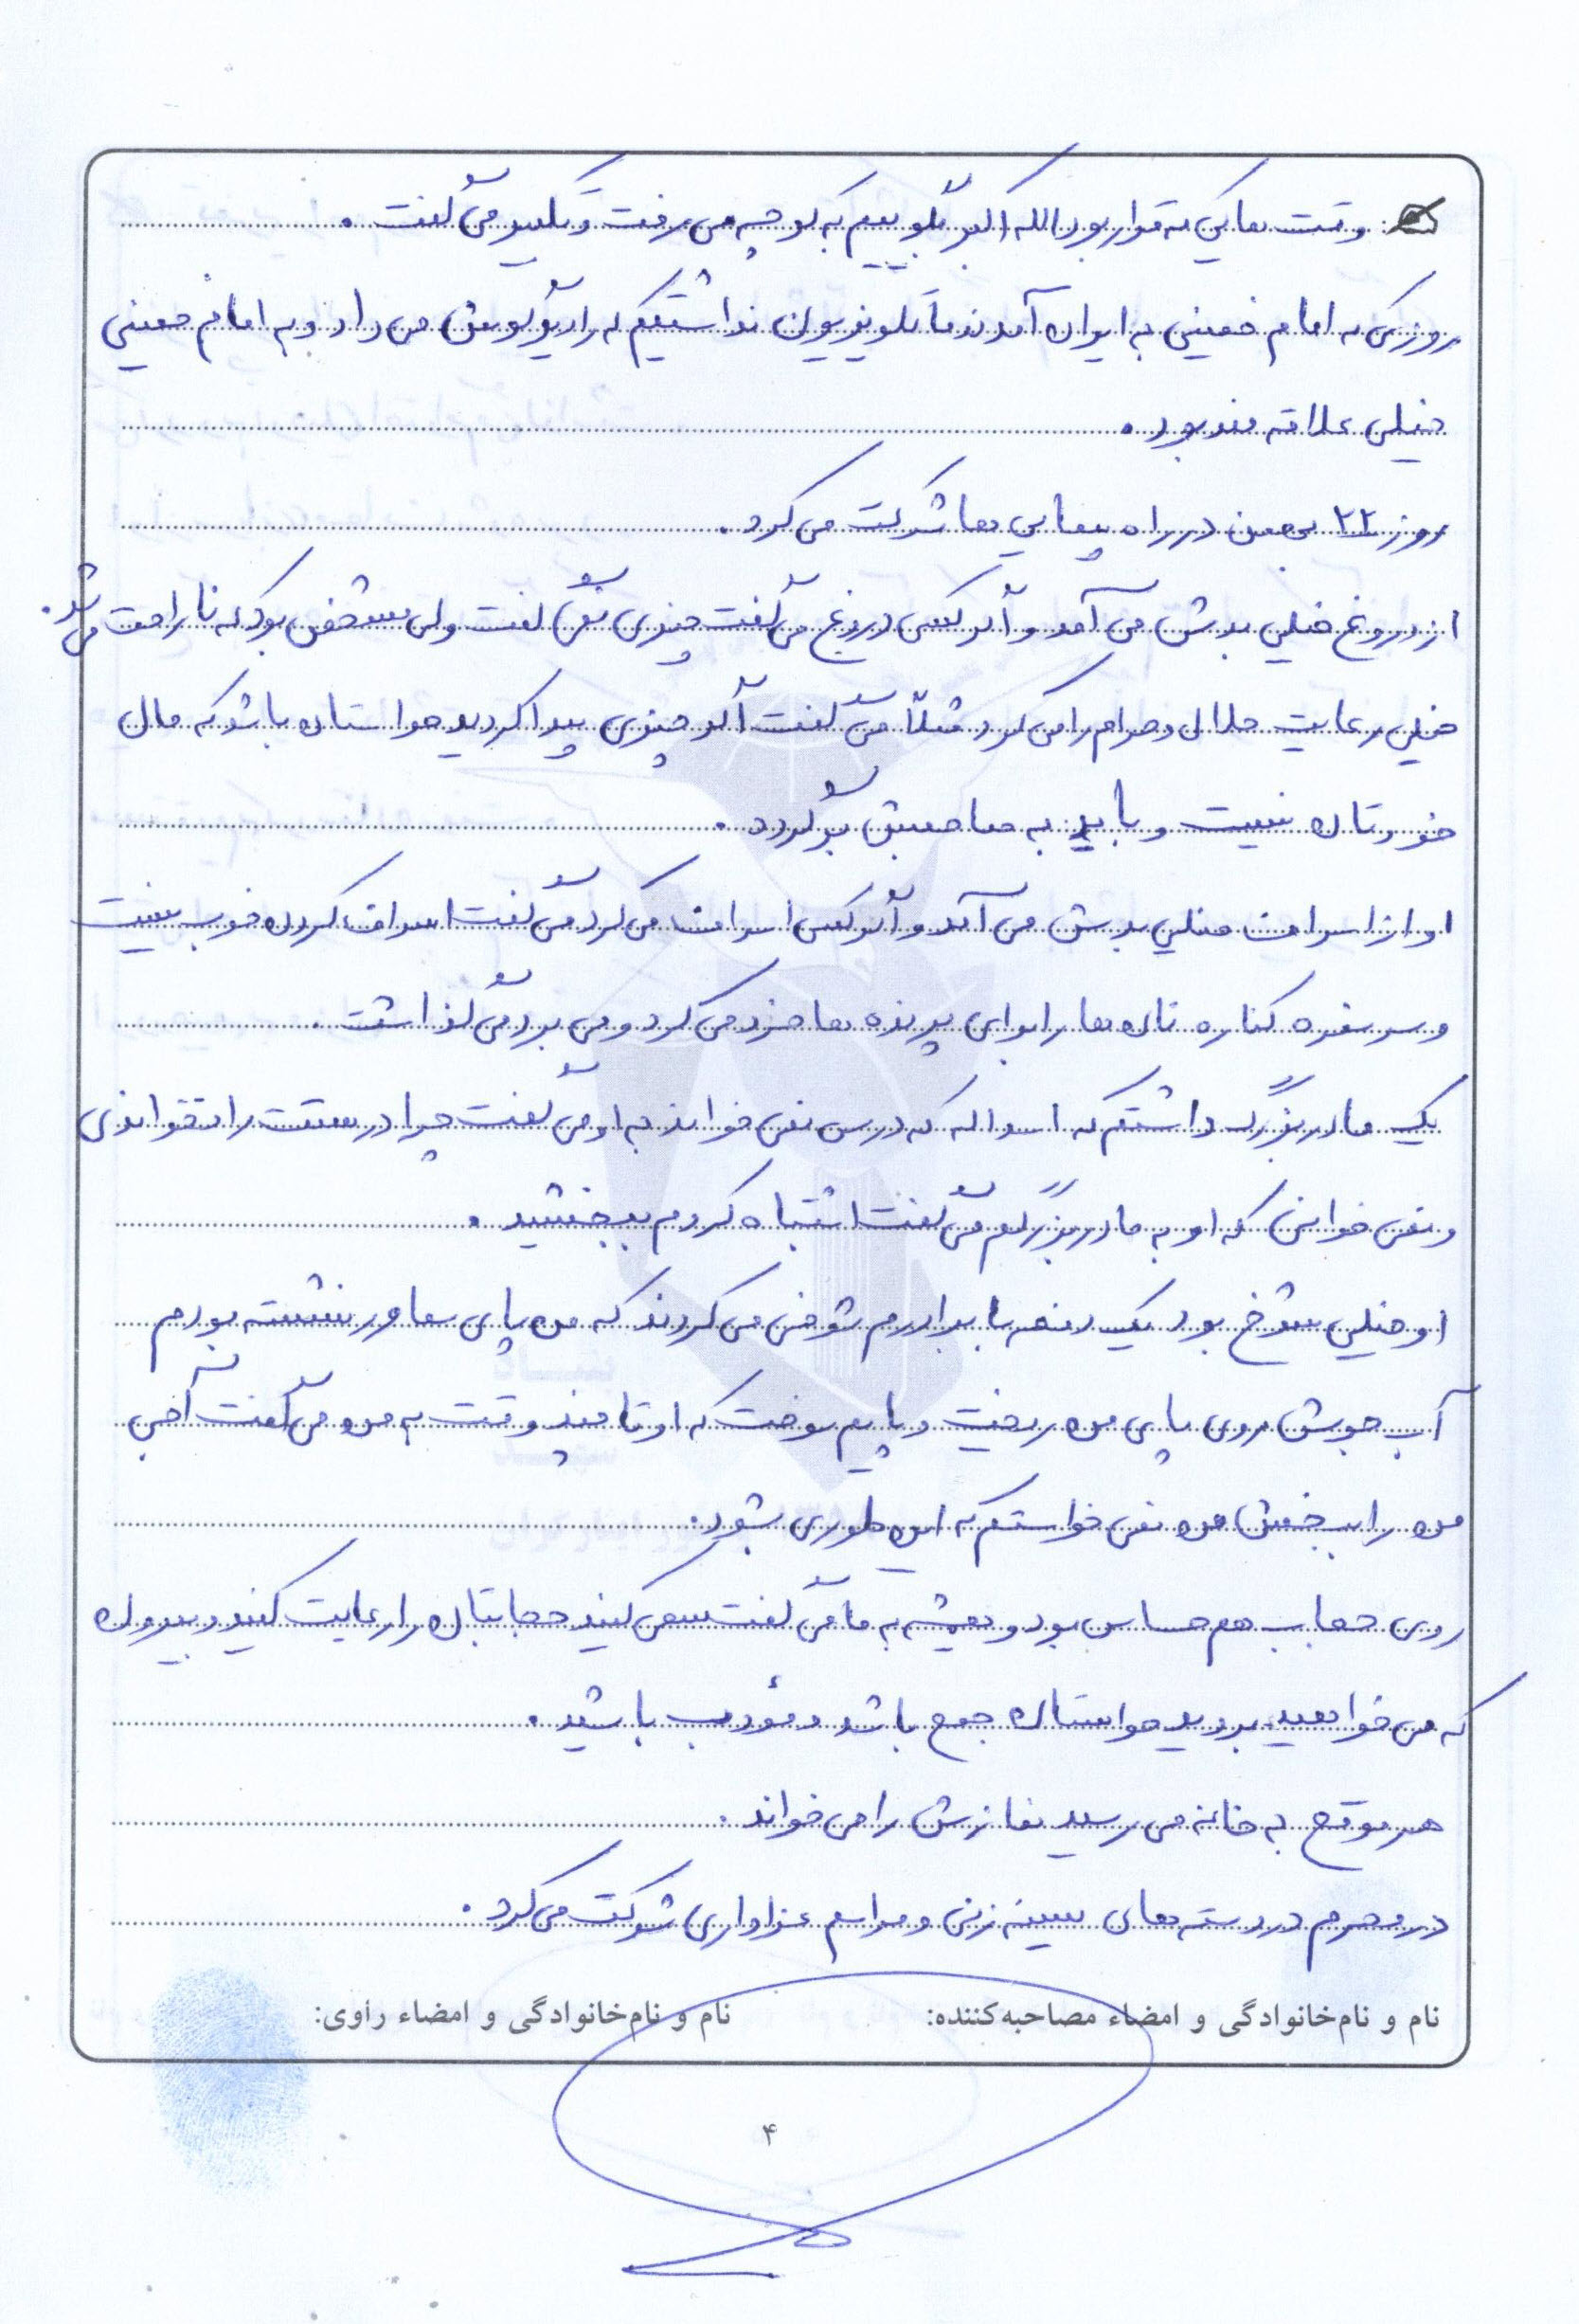 وقت هایی که قرار بود الله اکبر بگوییم به کوچه می رفت و تکبیر می گفت .
روزی که امام خمینی به ایران آمدند ما تلویزیون نداشتیم که رادیو گوش می داد و به امام خمینی
خیلی علاقه مند بود .
روز ۲۲ بهمن در راه پیمایی ها شرکت می کرد .
از دروغ خیلی بدش می آمد و اگر کسی دروغ می گفت چیزی نمی گفت ولی مشخص بود که ناراحت می شد .
خیلی رعایت حلال و حرام را می کرد مثلاً می گفت اگر چیزی پیدا کردید حواستان باشد که مال
خودتان نیست و باید به صاحبش برگردد .
او از اسراف خیلی بدش می آمد و اگر کسی اسراف می کرد می گفت اسراف کردن خوب نیست
و سر سفره کناره نان ها را برای پرنده ها خرد می کرد و می برد می گذاشت .
یک مادربزرگ داشتم که اسد اله که درس نمی خواند به او می گفت چرا درست را نمی خوانی
و نمی خوانی که او به مادربزرگم می گفت اشتباه کردم ببخشید .
او خیلی شوخ بود یک دفعه با برادرم شوخی می کردند که من پای سماور نشسته بودم
آب جوش روی پای من ریخت و پایم سوخت که او تا چند وقت به من می گفت آخی
من را ببخش من نمی خواستم که این طوری بشود .
روی حجاب هم حساس بود و همیشه به ما می گفت سعی کنید حجابتان را رعایت کنید و بیرون
که می خواهید بروید حواستان جمع باشد و مؤدب باشید .
هر موقع به خانه می رسید نمازش را می خواند .
در محرم در دسته های سینه زنی و مراسم عزاداری شرکت می کرد .
نام و نام‌خانوادگی و امضاء مصاحبه‌کننده: نام و نام‌خانوادگی و امضاء راوی:
۴